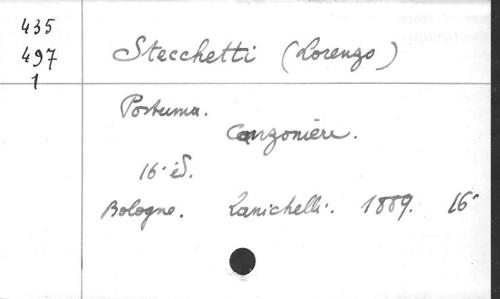 435
497
1
Stecchetti (Lorenzo)
Postuma.
Canzoniere.
16º éd.
Bologne. Zanichelli. 1889. 16º